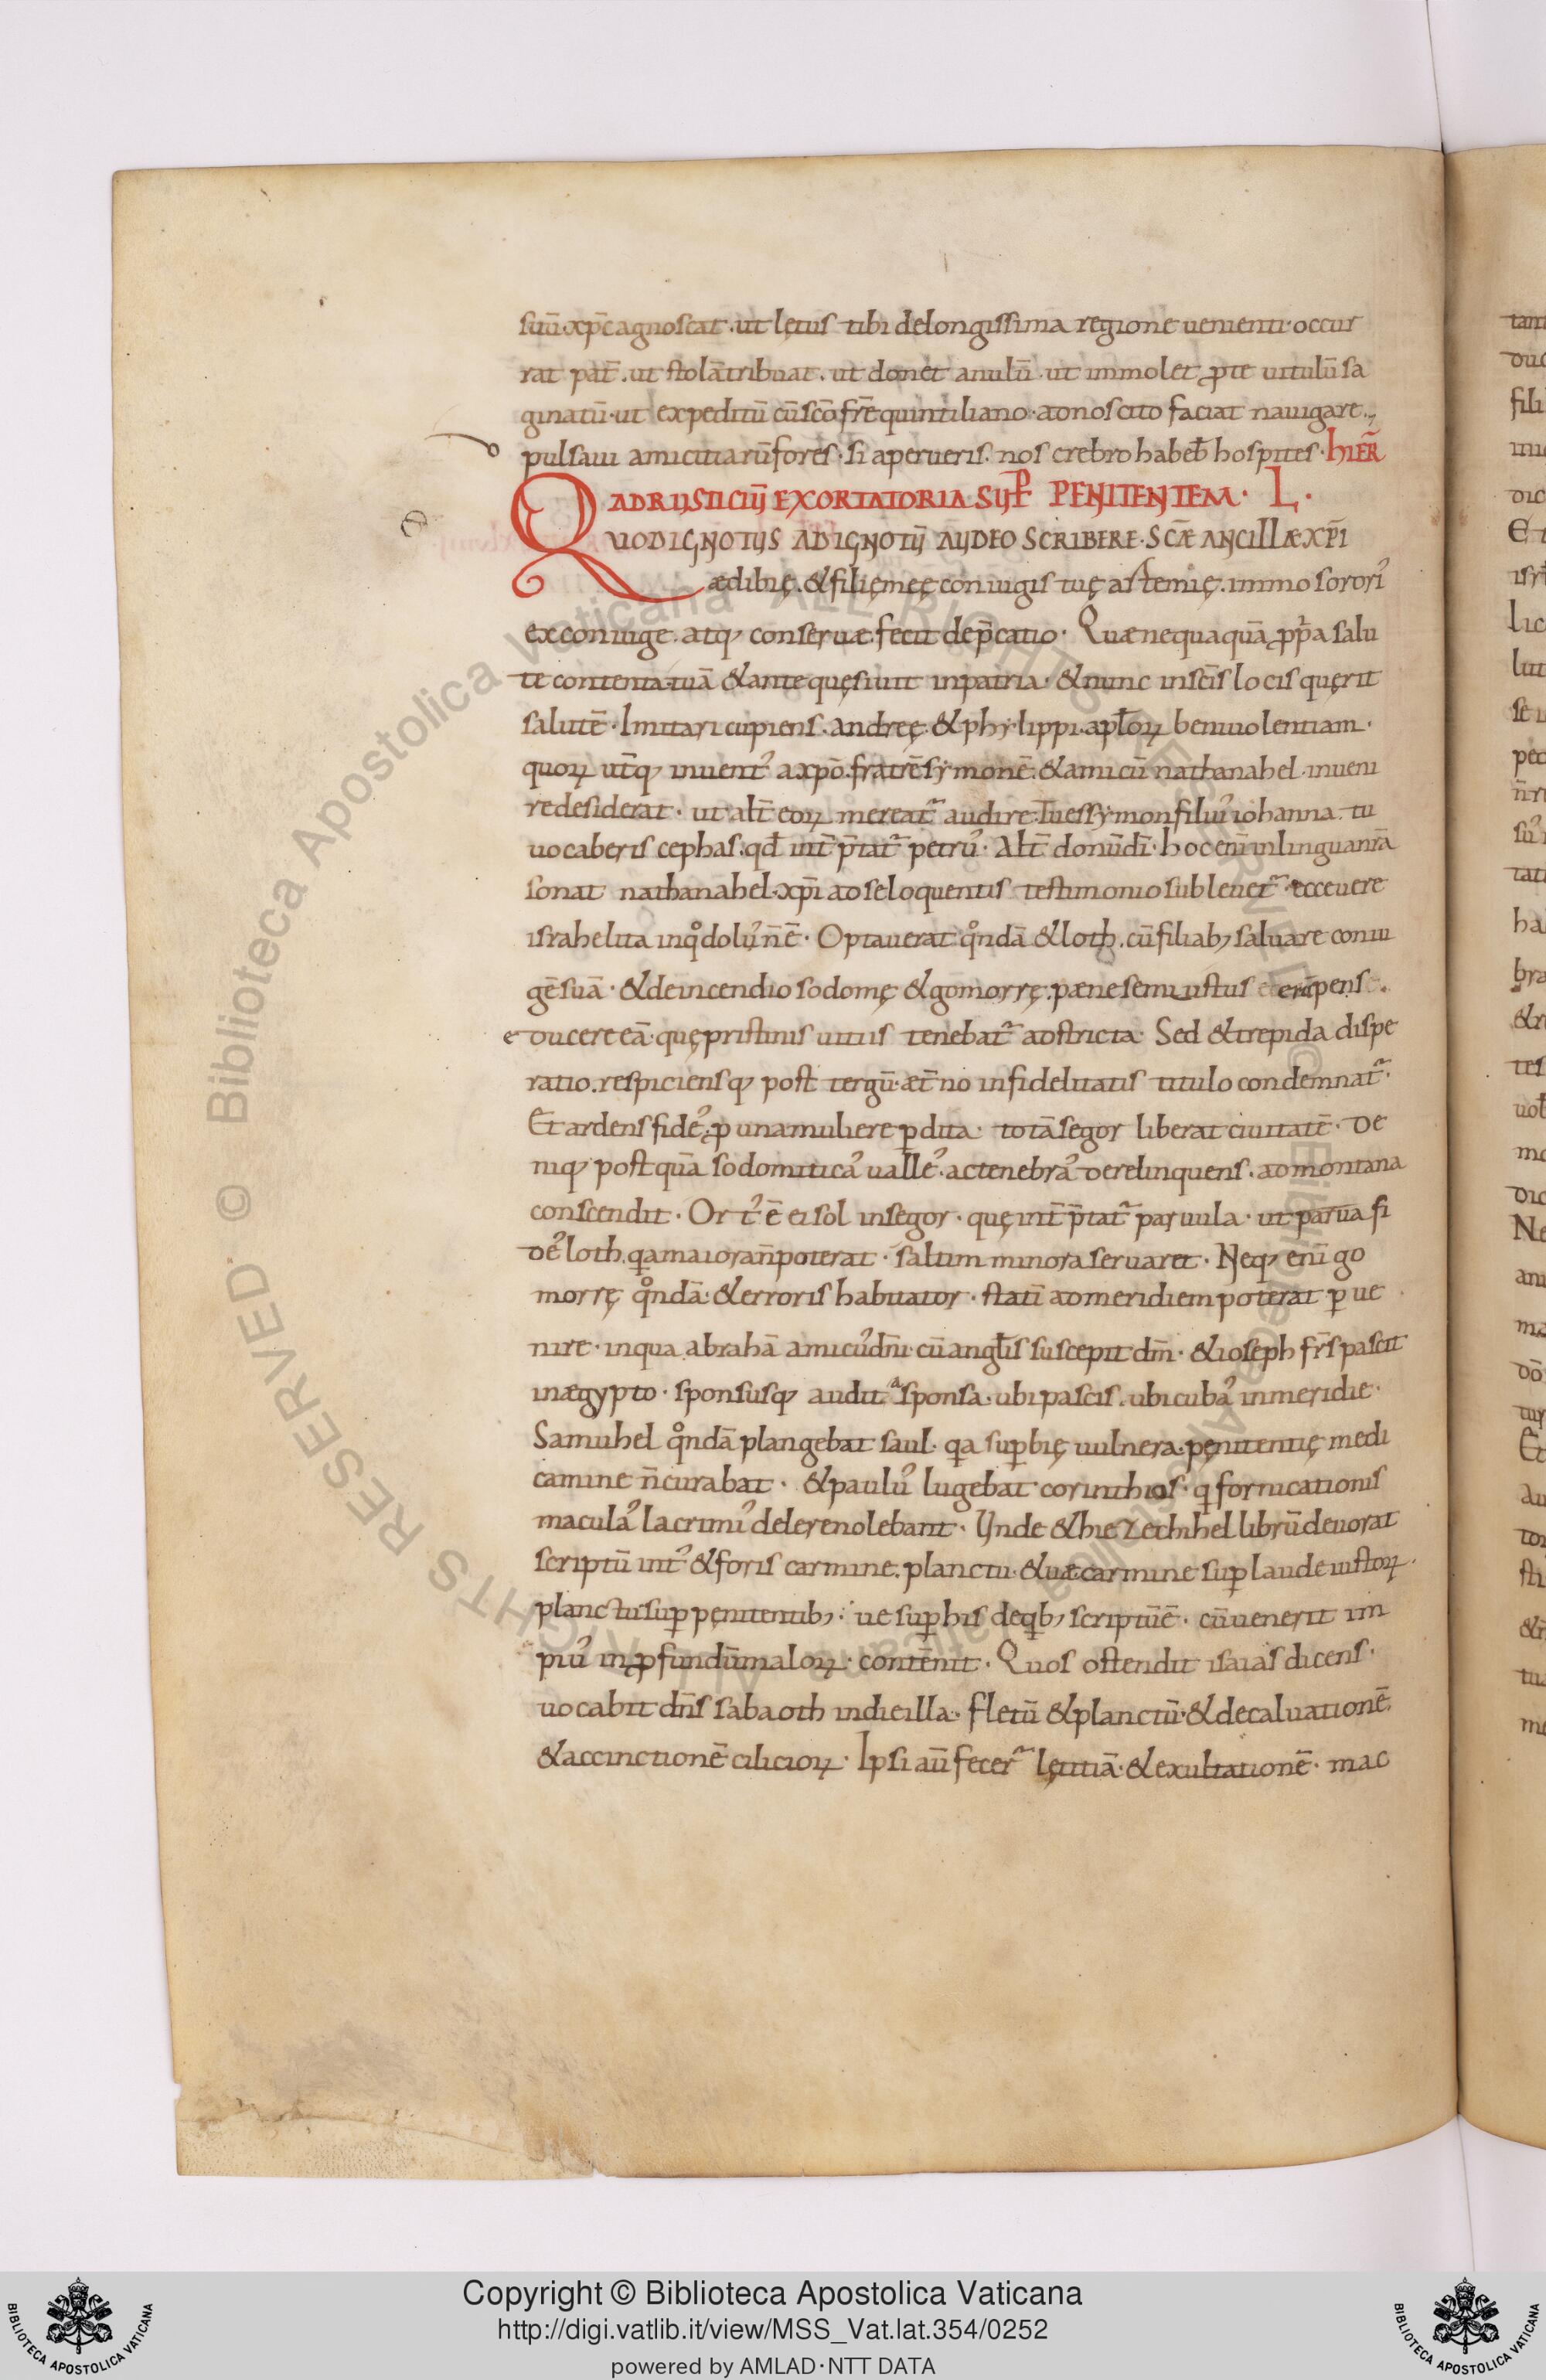 suū·xp̄c agnoscat·ut lętus tibi de longissima regione uenienti·occur
rat pat̄·ut stolā tribuat·ut donet anulū·ut immolet ꝓ te uitulū sa
ginatū·ut expeditū cū sc̄o fr̄e quintiliano·ad nos cito faciat nauigare·,
pulsaui amicitiarū fores·si aperueris·nos crebro habeb̄ hospites· HIER̄
AD RUSTICUM̄ EXORTATORIA SUꝑ PENITENTEM· L·
QUOD IGNOTUS AD IGNOTŪ AUDEO SCRIBERE·SC̄Æ ANCILLÆ XP̄I
ædibię·& filię meę coniugis tuę astemię·immo soror᾽
ex coniuge·atq; conseruæ·fecit dep̄catio· Quæ nequaquā ꝓp̄a salu
te contenta·tuā & ante quęsiuit in patria·& nunc in sc̄is locis quęrit
salutē·Imitari cupiens·andreę·& phy·lippi·apl̄oꝝ beniuolentiam·
quoꝝ ut̄q; inuent᾽ a xp̄o·fratrē sẏmonē·& amicū nathanahel·inueni
re desiderat·ut alt̄ eoꝝ mereat᷑ audire·Tu es sẏmon filiu᾽ iohanna·tu
uocaberis cephas·qd̄ int̄p̄tat᷑ petru᾽·Alt̄ donū dī·hoc enī in lingua nr̄a
sonat nathanahel·xp̄i ad se loquentis testimonio subleuet᷑·ecce uere
israhelita in qͦ dolu᾽ n̄ ē· Optauerat qͦndā & loth·cū filiab; saluare coniu
gē suā·& de incendio sodomę & gomorrę·pæne semiustus erūpens·
educere eā·quę pristinis uitiis tenebat᷑ adstricta· Sed & trepida dispe
ratio·respiciensq; post tergū·æt̄no infidelitatis titulo condemnat᷑·
Et ardens fide᾽·ꝓ una muliere ꝑdita·totā segor liberat ciuitatē·De
niq; postquā sodomitica᾽ ualle᾽·ac tenebra᾽ derelinquens·ad montana
conscendit·Ort᾽ ē ei sol in segor·quę int̄p̄tat᷑ paruula·ut parua fi
de᾽ loth·qa maiora n̄ poterat·saltim minora seruaret·Neq; enī go
morrę qͦndā·& erroris habitator·statī ad meridiem poterat ꝑue
nire·in qua abrahā amicu᾽ dn̄i·cū angl̄is suscepit dm̄·& ioseph fr̄s pascit
in ægypto·sponsusq; audit᷑ a sponsa·ubi pascis·ubi cuba᾽ in meridie·
Samuhel qͦndā plangebat saul·qa suꝑbię uulnera·pęnitentię medi
camine n̄ curabat· & paulu᾽ lugebat corinthios·q fornicationis
macula᾽ lacrimi᾽ delere nolebant·Unde & hiezechihel librū deuorat
scriptū int᾽ & foris carmine·planctu·& uæ·carmine suꝑ laude iustoꝝ·
planctu suꝑ pęnitentib;·ue suꝑ his de qb; scriptū ē·cū uenerit im
piu᾽ in ꝓfundū maloꝝ·contēnit·Quos ostendit isaias dicens·
uocabit dn̄s sabaoth in die illa·fletū & planctū·& decaluationē
& accinctionē cilicioꝝ·Ipsi aū fecer᷑ lętitiā·& exultationē·mac
tam
Copyright © Biblioteca Apostolica Vaticana
http://digi.vatlib.it/view/MSS_Vat.lat.354/0252
powered by AMLAD·NTT DATA
BIBLIOTECA APOSTOLICA VATICANA
BIBLIOTECA APOSTOLICA VATICANA
© Biblioteca Apostolica Vaticana ALL RIGHTS RESERVED